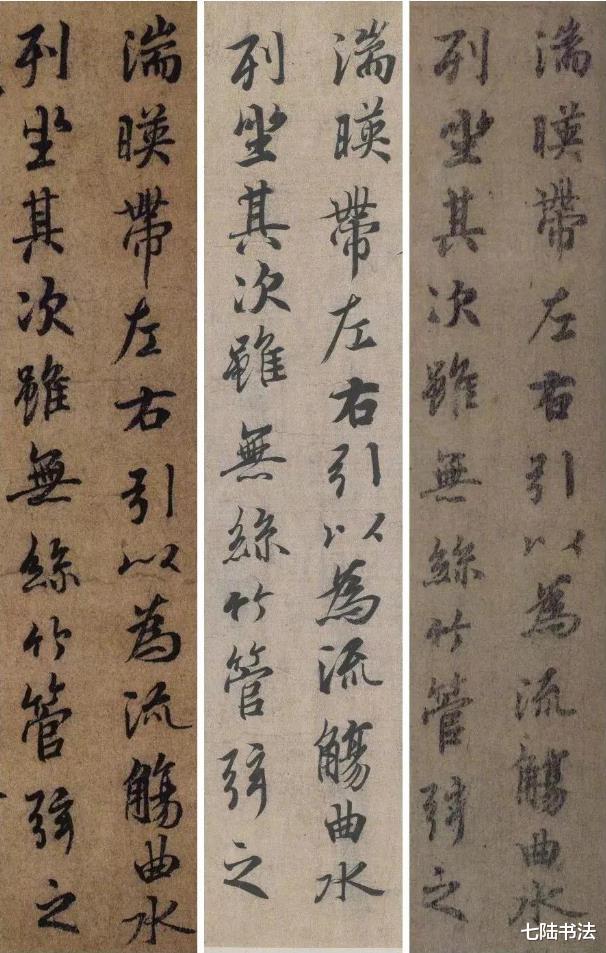 湍暎帶左右引以為流觴曲水
列坐其次雖無絲竹管弦之
湍暎帶左右引以為流觴曲水
列坐其次雖無絲竹管弦之
湍暎帶左右引以為流觴曲水
列坐其次雖無絲竹管弦之
七陆书法